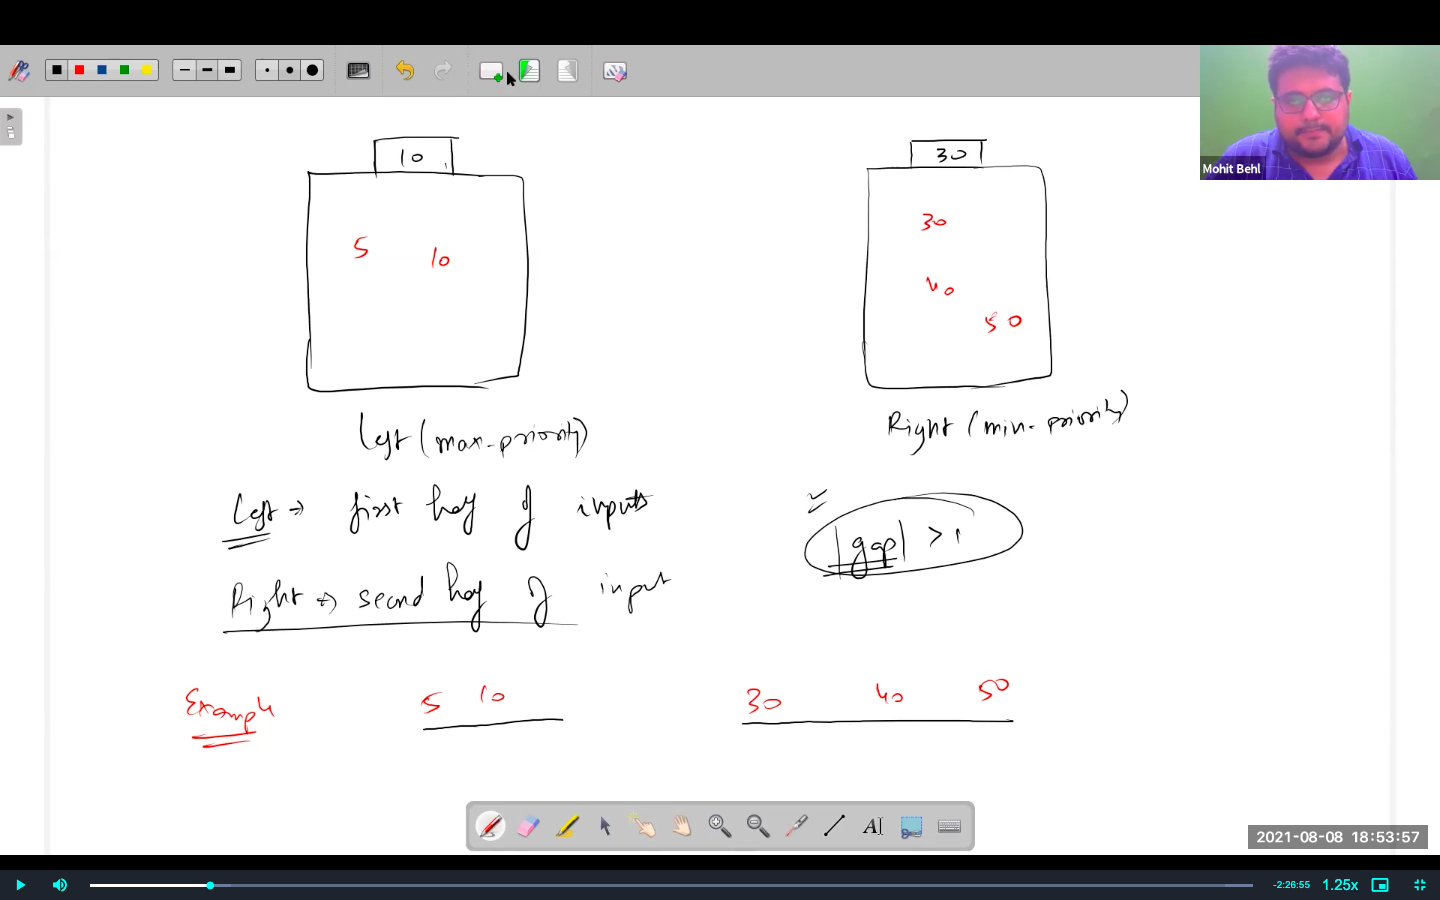 Mohit Behl
10
30
5 10
30
40
50
Left (max-priority)
Right (min-priority)
Left → first half of inputs
|gap| > 1
Right → second half of input
Example 5 10 30 40 50
AI
2021-08-08 18:53:57
-2:26:55 1.25x